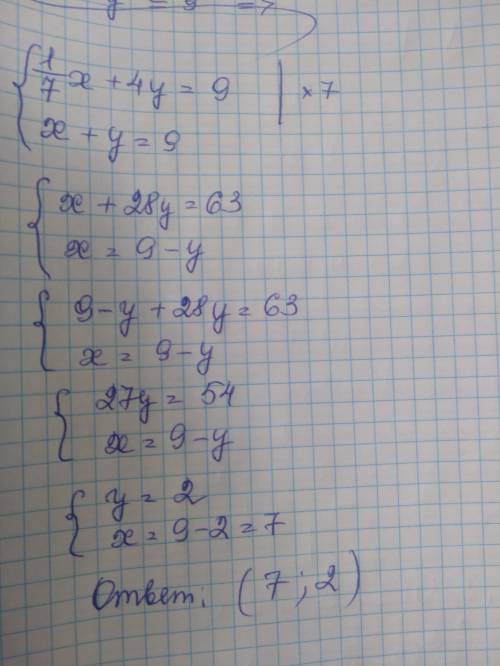 y = 9 =>
1/7 x + 4y = 9 | × 7
x + y = 9
x + 28y = 63
x = 9 - y
9 - y + 28y = 63
x = 9 - y
27y = 54
x = 9 - y
y = 2
x = 9 - 2 = 7
Ответ: (7; 2)